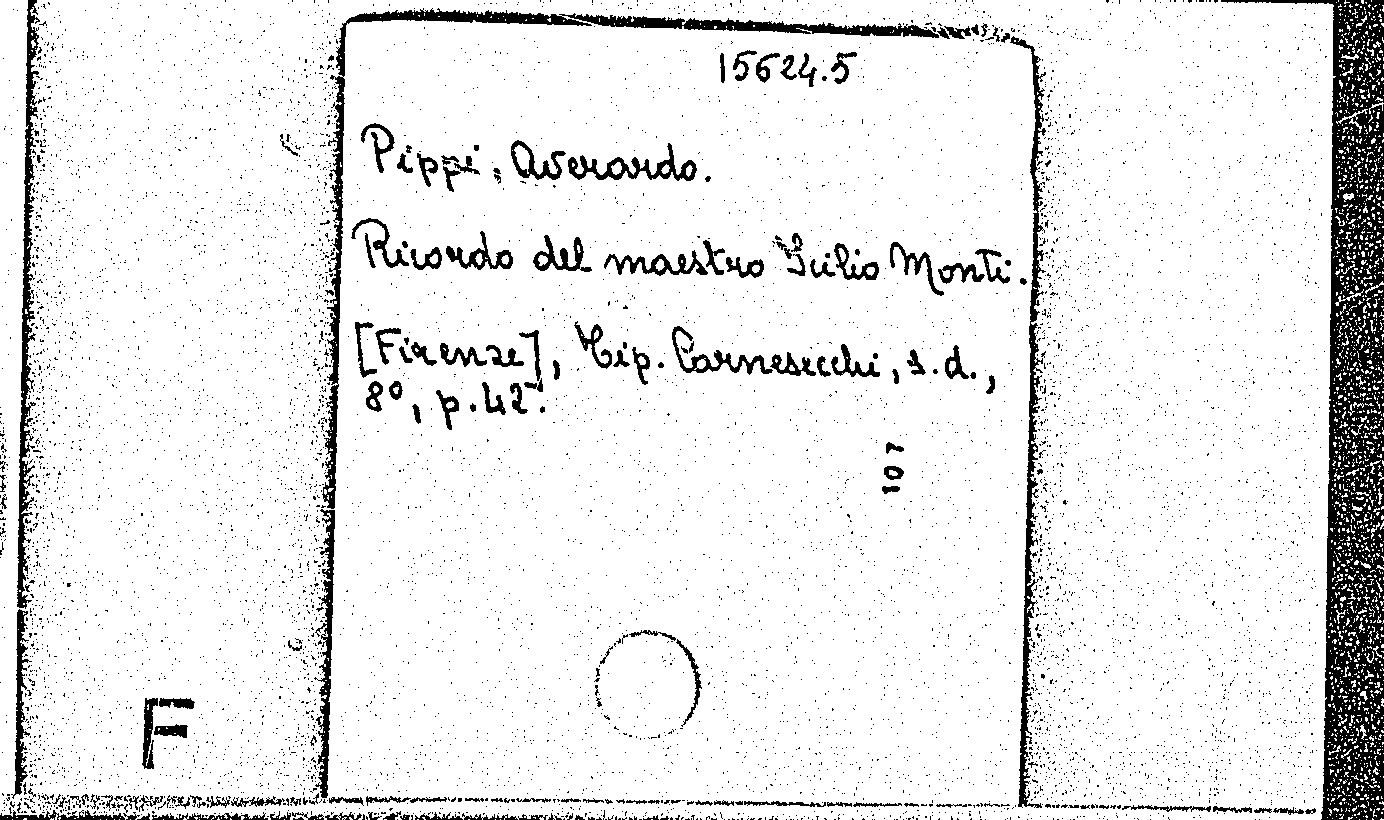 15624.5
Pippi, Averardo.
Ricordo del maestro Icilio Monti.
[Firenze], Tip. Carnesecchi, s.d.,
8°, p. 42.
107
F